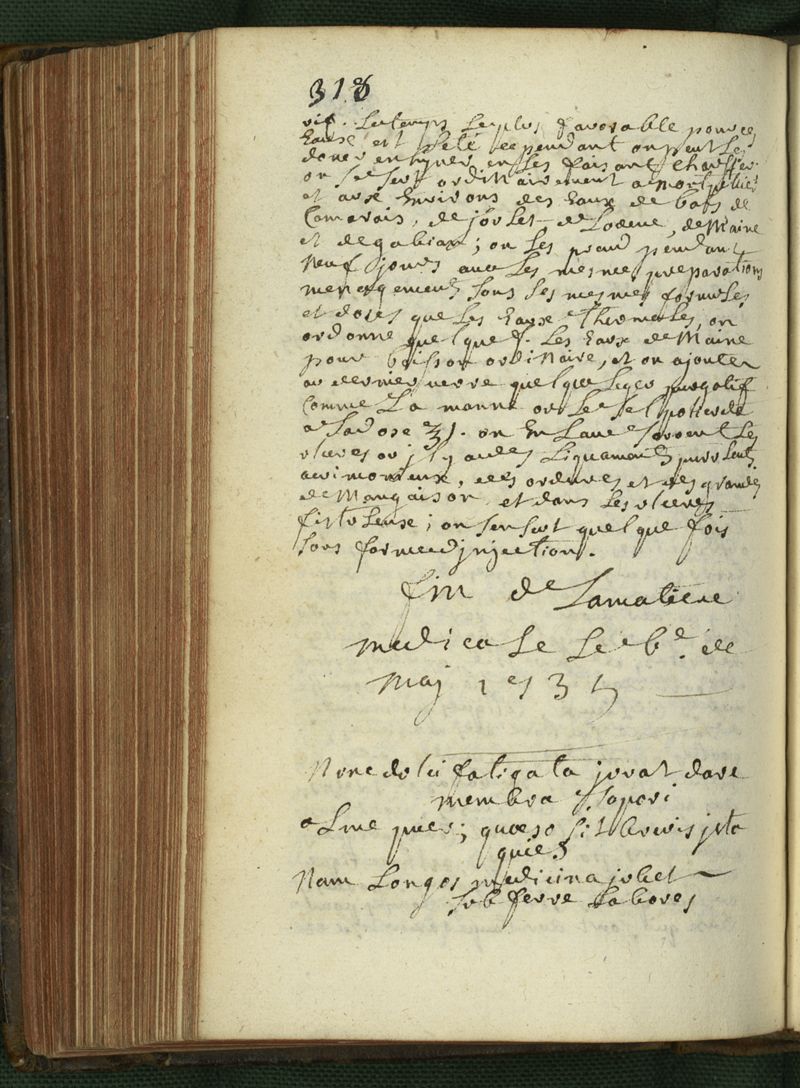 318
vif. Le temps le plus favorable pour ces
Eaux est l'eté cependant on peut les
doner en hyver en les faisant chauffer
on se sert ordinairement a Montpellier
et aux Environs des Eaux de bais de
Camarais, de jouset de Lodeve, de Maine
et de gabian; on les prend pendant
Neuf jours avec les mesmes preparations
menagements sous les mesmes formules
et doses que les Eaux Thermales, on
ordonne quelque f. les Eaux de Maine
pour boisson ordinaire, et on ajoute
au dernier verre quelque leger purgatif
Comme La manne ou le sel policreste
a la dose ʒ1. on En Lave souvent les
ulceres ou il y a des Liquaments purulents
acrimonieux, des ordures et des grandes
demangaison, et dans les ulceres
fistuleuse; on s'en sert quelque fois
sous forme d'injection.
fin de Lamatiere
medicale le 6e. de
Maj 1735
Nunc dulci fatigata juvat dare
membra sopori
alme puer; quaeso sit brevis ista
quies
Nam Longos medicina jubet
sub ferre Labores